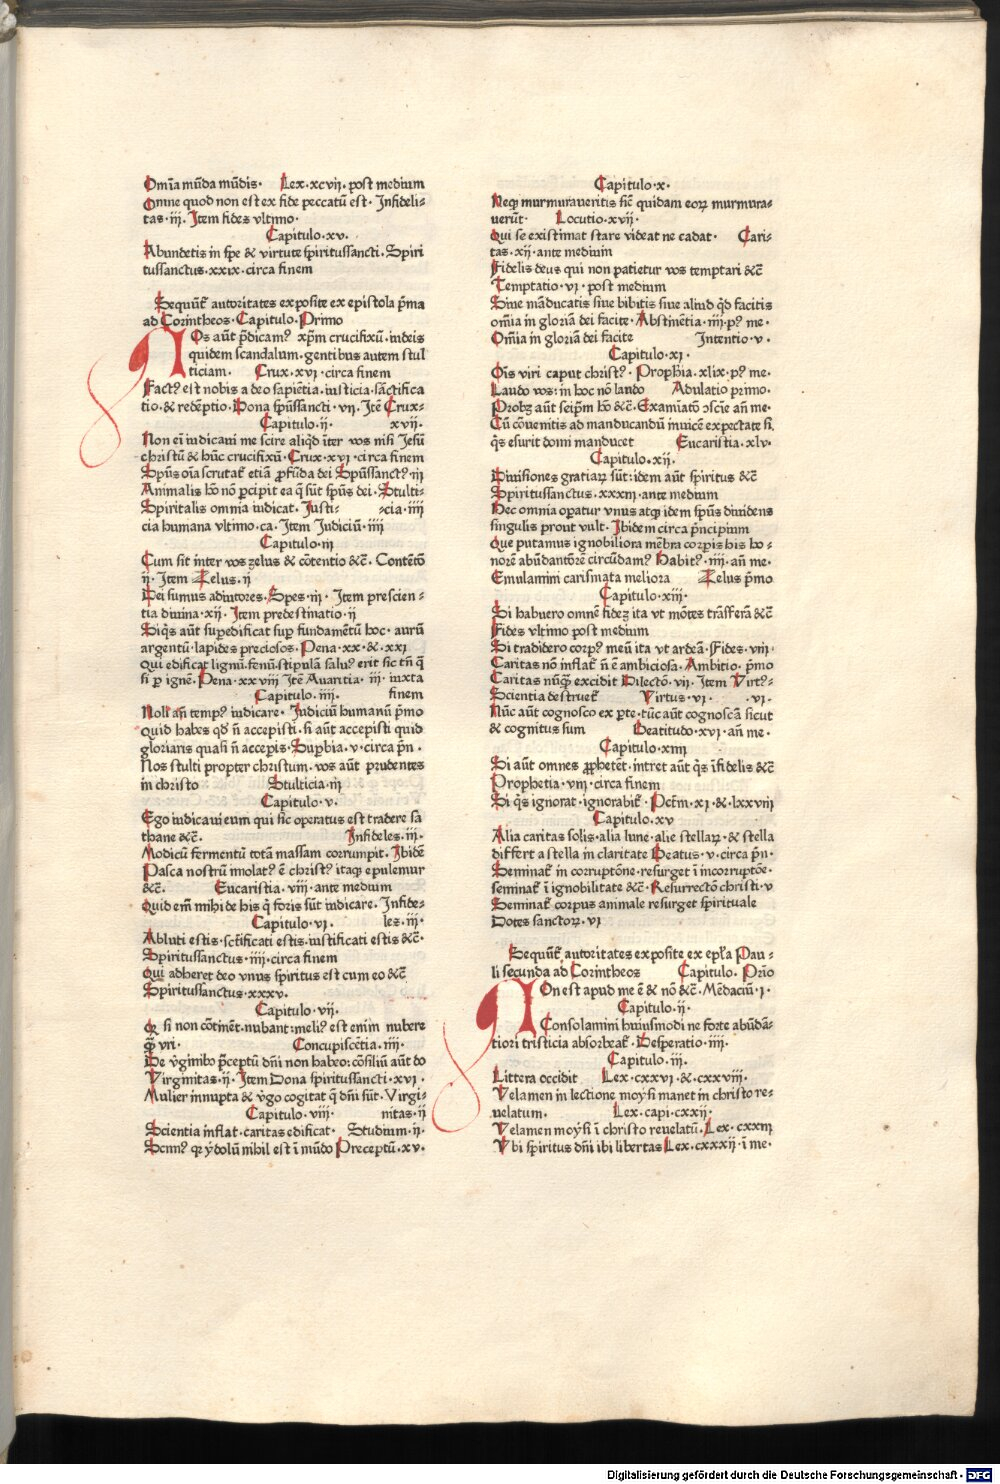 Om̅ia mu̅da mu̅dis· Lex·xcvij·post medium
Omne quod non est ex fide peccatu̅ est· Infideli⸗
tas·iij· Item fides vltimo·
Capitulo·xv·
Abundetis in spe & virtute spiritussancti·Spiri
tussanctus·xxix·circa finem
Sequu̅t̉ autoritates exposite ex epistola p̅ma
ad Corintheos·Capitulo·Primo
NOs au̅t p̅dicam⁹ xp̅m crucifixu̅·iudeis
quidem scandalum·gentibus autem stul
ticiam· Crux·xvi·circa finem
Fact⁹ est nobis a deo sapie̅tia·iusticia·sa̅ctifica
tio·& rede̅ptio·Dona sp̅ussancti·vij·Ite̅ Crux⸗
Capitulo·ij· xvij·
Non ei̅ iudicaui me scire aliq̇d i̅ter vos nisi Jesu̅
christu̅ & hu̅c crucifixu̅·Crux·xvi·circa finem
Sp̅us oi̅a scrutat̉ etia̅ ꝓfu̅da dei·Sp̅ussanct⁹·iij
Animalis ho̅ no̅ ꝑcipit ea q̅ su̅t sp̅us dei·Stulti⸗
Spiritalis omnia iudicat·Justi⸗ ⸗cia·iiij
cia humana vltimo·ca·Item Judiciu̅·iiij
Capitulo·iij
Cum sit inter vos zelus & co̅tentio &c̅·Conte̅to̅
ij·Item Zelus·ij
Dei sumus adiutores·Spes·iij· Item prescien⸗
tia diuina·xij· Item predestinatio·ij
Siq̇s au̅t suꝑedificat suꝑ fundame̅tu̅ hoc·auru̅
argentu̅·lapides preciosos·Pena·xx·&·xxi
Qui edificat lignu̅·fenu̅·stipula̅ salu⁹ erit sic tn̅ q̅
si ꝑ igne̅·Pena·xxviij Ite̅ Auaritia·iij·iuxta
Capitulo·iiij· finem
Noli an̅ temp⁹ iudicare·Judiciu̅ humanu̅ p̅mo
Quid habes qd̅ n̅ accepisti·si au̅t accepisti quid
gloriaris quasi n̅ acceꝑis·Suꝑbia·v·circa p̅n·
Nos stulti propter christum·vos au̅t prudentes
in christo Stulticia·iij
Capitulo·v·
Ego iudicaui eum qui sic operatus est tradere sa
thane &c̅· Infideles·iij·
Modicu̅ fermentu̅ tota̅ massam corrumpit·Ibide̅
Pasca nostru̅ imolat⁹ e̅ christ⁹ itaqꝫ epulemur
&c̅· Eucaristia·viij·ante medium
Quid em̅ mihi de his q̇ foris su̅t iudicare·Infide⸗
Capitulo·vi· les·iij·
Abluti estis·sc̅tificati estis·iustificati estis &c̅·
Spiritussanctus·iiij·circa finem
Qui adheret deo vnus spiritus est cum eo &c̅
Spiritussanctus·xxxv·
Capitulo·vij·
Qꝫ si non co̅tine̅t·nubant:meli⁹ est enim nubere
q̅ꝫ vri· Concupisce̅tia·iiij·
De v̇gi̅ibꝰ p̅ceptu̅ dn̅i non habeo:co̅siliu̅ au̅t do
Virginitas·ij·Item Dona spiritussancti·xvi·
Mulier innupta & v̇go cogitat q̅ dn̅i su̅t·Virgi⸗
Capitulo·viij· nitas·ij
Scientia inflat·caritas edificat· Studium·ij·
Scim⁹ qꝫ ydolu̅ nihil est i̅ mu̅do Preceptu̅·xv·
Capitulo·x·
Neqꝫ murmuraueritis sic̅ quidam eorꝝ murmura⸗
ueru̅t· Locutio·xvij·
Qui se existimat stare videat ne cadat· Cari⸗
tas·xij·ante medium
Fidelis deus qui non patietur vos temptari &c̅
Temptatio·vi·post medium
Siue ma̅ducatis siue bibitis siue aliud qd̅ facitis
om̅ia in gloria̅ dei facite·Abstine̅tia·iij·p⁹ me·
Om̅ia in gloria̅ dei facite Intentio·v·
Capitulo·xi·
Oi̅s viri caput christ⁹· Prophi̅a·xlix·p⁹ me·
Laudo vos:in hoc no̅ laudo Adulatio primo·
Probꝫ au̅t seip̅m ho̅ &c̅·Examiato̅ ↄscie̅ an̅ me·
Cu̅ co̅uenitis ad manducandu̅ inuice̅ expectate si·
q̇s esurit domi manducet Eucaristia·xlv·
Capitulo·xij·
Diuisiones gratiarꝝ su̅t:idem au̅t spiritus &c̅
Spiritussanctus·xxxiij·ante medium
Hec omnia oꝑatur vnus atqꝫ idem sp̅us diuidens
singulis prout vult·Ibidem circa p̅ncipium
Que putamus ignobiliora me̅bra corꝑis his ho⸗
nore̅ abu̅dantore̅ circu̅dam⁹ Habit⁹·iiij·an̅ me·
Emulamini carismata meliora Zelus p̅mo
Capitulo·xiij·
Si habuero omne̅ fideꝫ ita vt mo̅tes tra̅sfera̅ &c̅
Fides vltimo post medium
Si tradidero corp⁹ meu̅ ita vt ardea̅·Fides·viij·
Caritas no̅ inflat n̅ e̅ ambiciosa·Ambitio·p̅mo
Caritas nu̅q̅ꝫ excidit Dilecto̅·vij·Item Virt⁹⸗
Scientia destruet̉ Virtus·vi· ·vi·
Nu̅c aut cognosco ex ꝑte·tu̅c au̅t cognosca̅ sicut
& cognitus sum Beatitudo·xvi·an̅ me·
Capitulo·xiiij
Si au̅t omnes ꝓphete̅t·intret au̅t q̇s i̅fidelis &c̅
Prophetia·viij·circa finem
Si q̇s ignorat·ignorabit̉·Pctm̅·xi·&·lxxviij
Capitulo·xv
Alia caritas solis·alia lune·alie stellarꝝ·& stella
differt a stella in claritate Beatus·v·circa p̅n·
Seminat̉ in corrupto̅ne·resurget i̅ incorrupto̅e·
seminat̉ i̅ ignobilitate &c̅·Resurrecto̅ christi·v
Seminat̉ corpus animale resurget spirituale
Dotes sanctorꝝ·vi
Sequu̅t̉ autoritates exposite ex epl̅a Pau⸗
li secunda ad Corintheos Capitulo·Pri̅o
NOn est apud me e̅ & no̅ &c̅·Me̅daciu̅·i·
Capitulo·ij·
Consolamini huiusmodi ne forte abu̅da̅⸗
tiori tristicia absorbeat̉·Desperatio·iiij·
Capitulo·iij·
Littera occidit Lex·cxxvi·&·cxxviij·
Velamen in lectione moysi manet in christo re⸗
uelatum· Lex·capi·cxxij·
Velamen moysi i̅ christo reuelatu̅·Lex·cxxiij
Vbi spiritus dn̅i ibi libertas Lex·cxxxij·i̅ me·
Digitalisierung gefördert durch die Deutsche Forschungsgemeinschaft - DFG